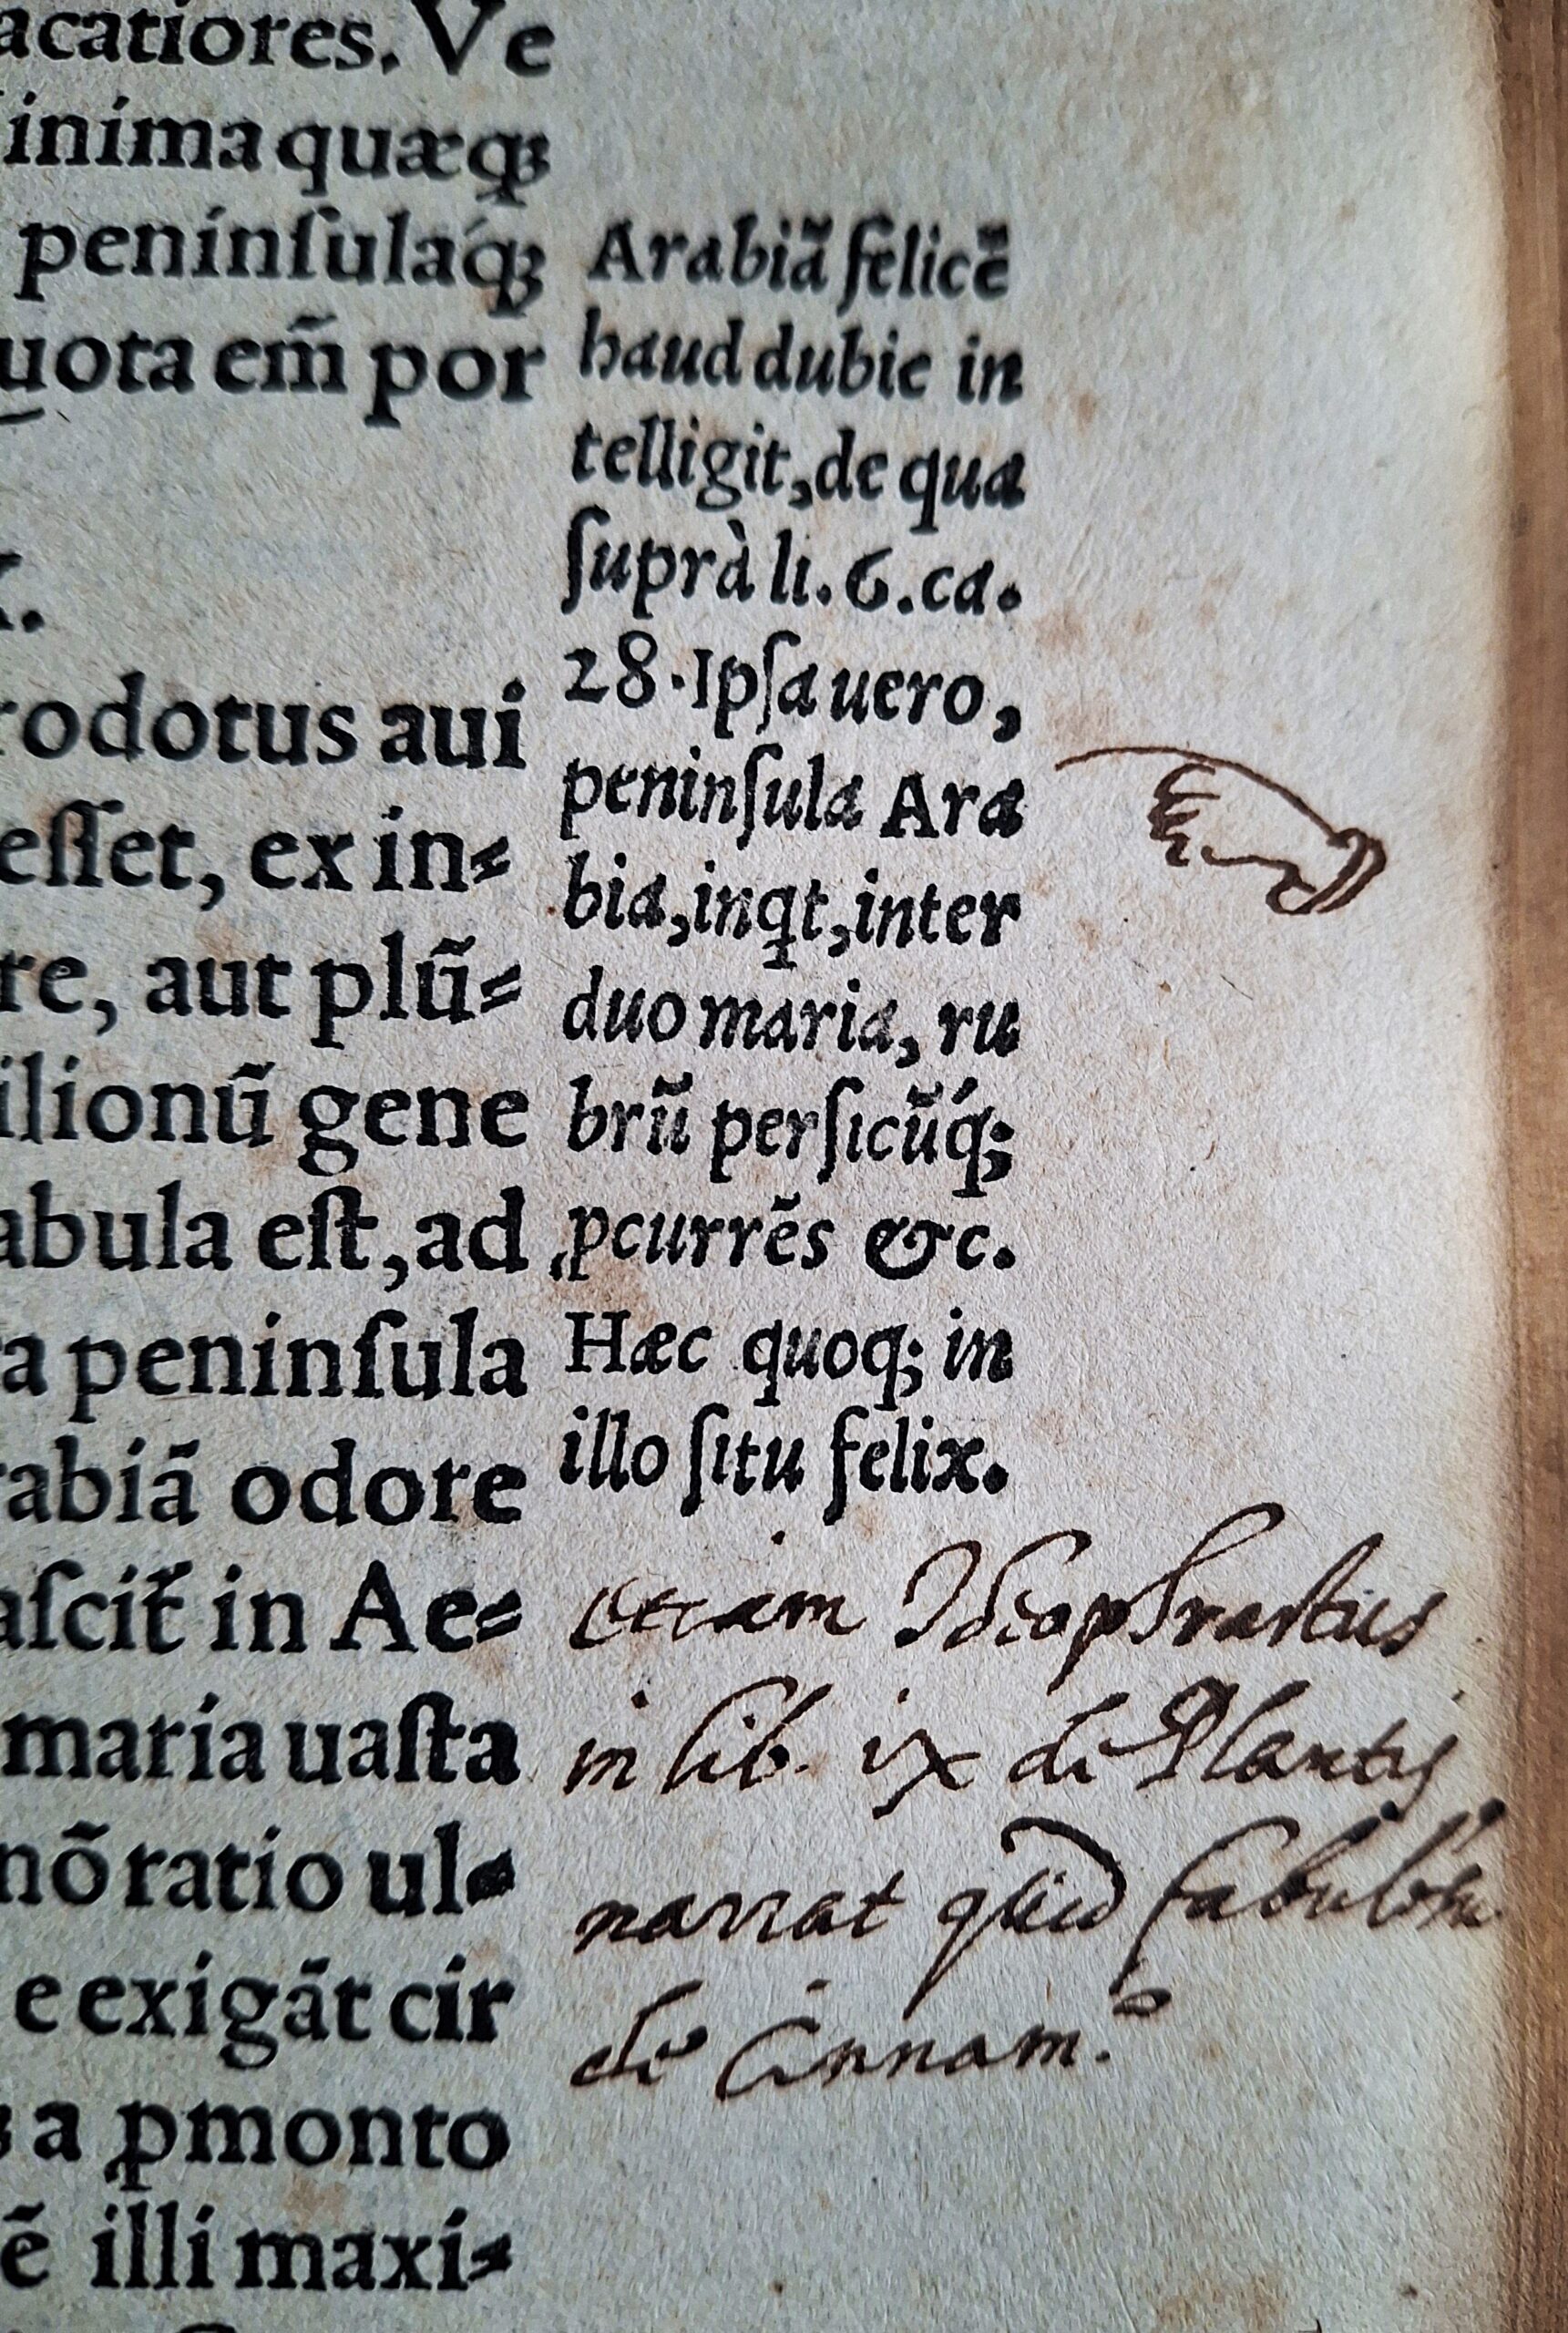 acatiores. Ve
inima quæq;
peninſulaq́;
uota em̄ por
rodotus aui
eſſet, ex in⸗
re, aut plũ⸗
ilionũ gene
abula eſt, ad
a peninſula
rabiã odore
aſcit̃ in Ae⸗
maria uaſta
nõ ratio ul⸗
e exigãt cir
a ꝓmonto
ẽ illi maxi⸗
Arabiã felicẽ
haud dubie in
telligit, de qua
ſuprà li. 6. ca.
28. Ipſa uero,
peninſula Ara
bia, inqt, inter
duo maria, ru
brũ perſicũq́;
ꝓcurrẽs &c.
Hæc quoq; in
illo ſitu felix.
etiam Theophrastus
in lib. ix de Plantis
narrat quid
de Cinnam.º